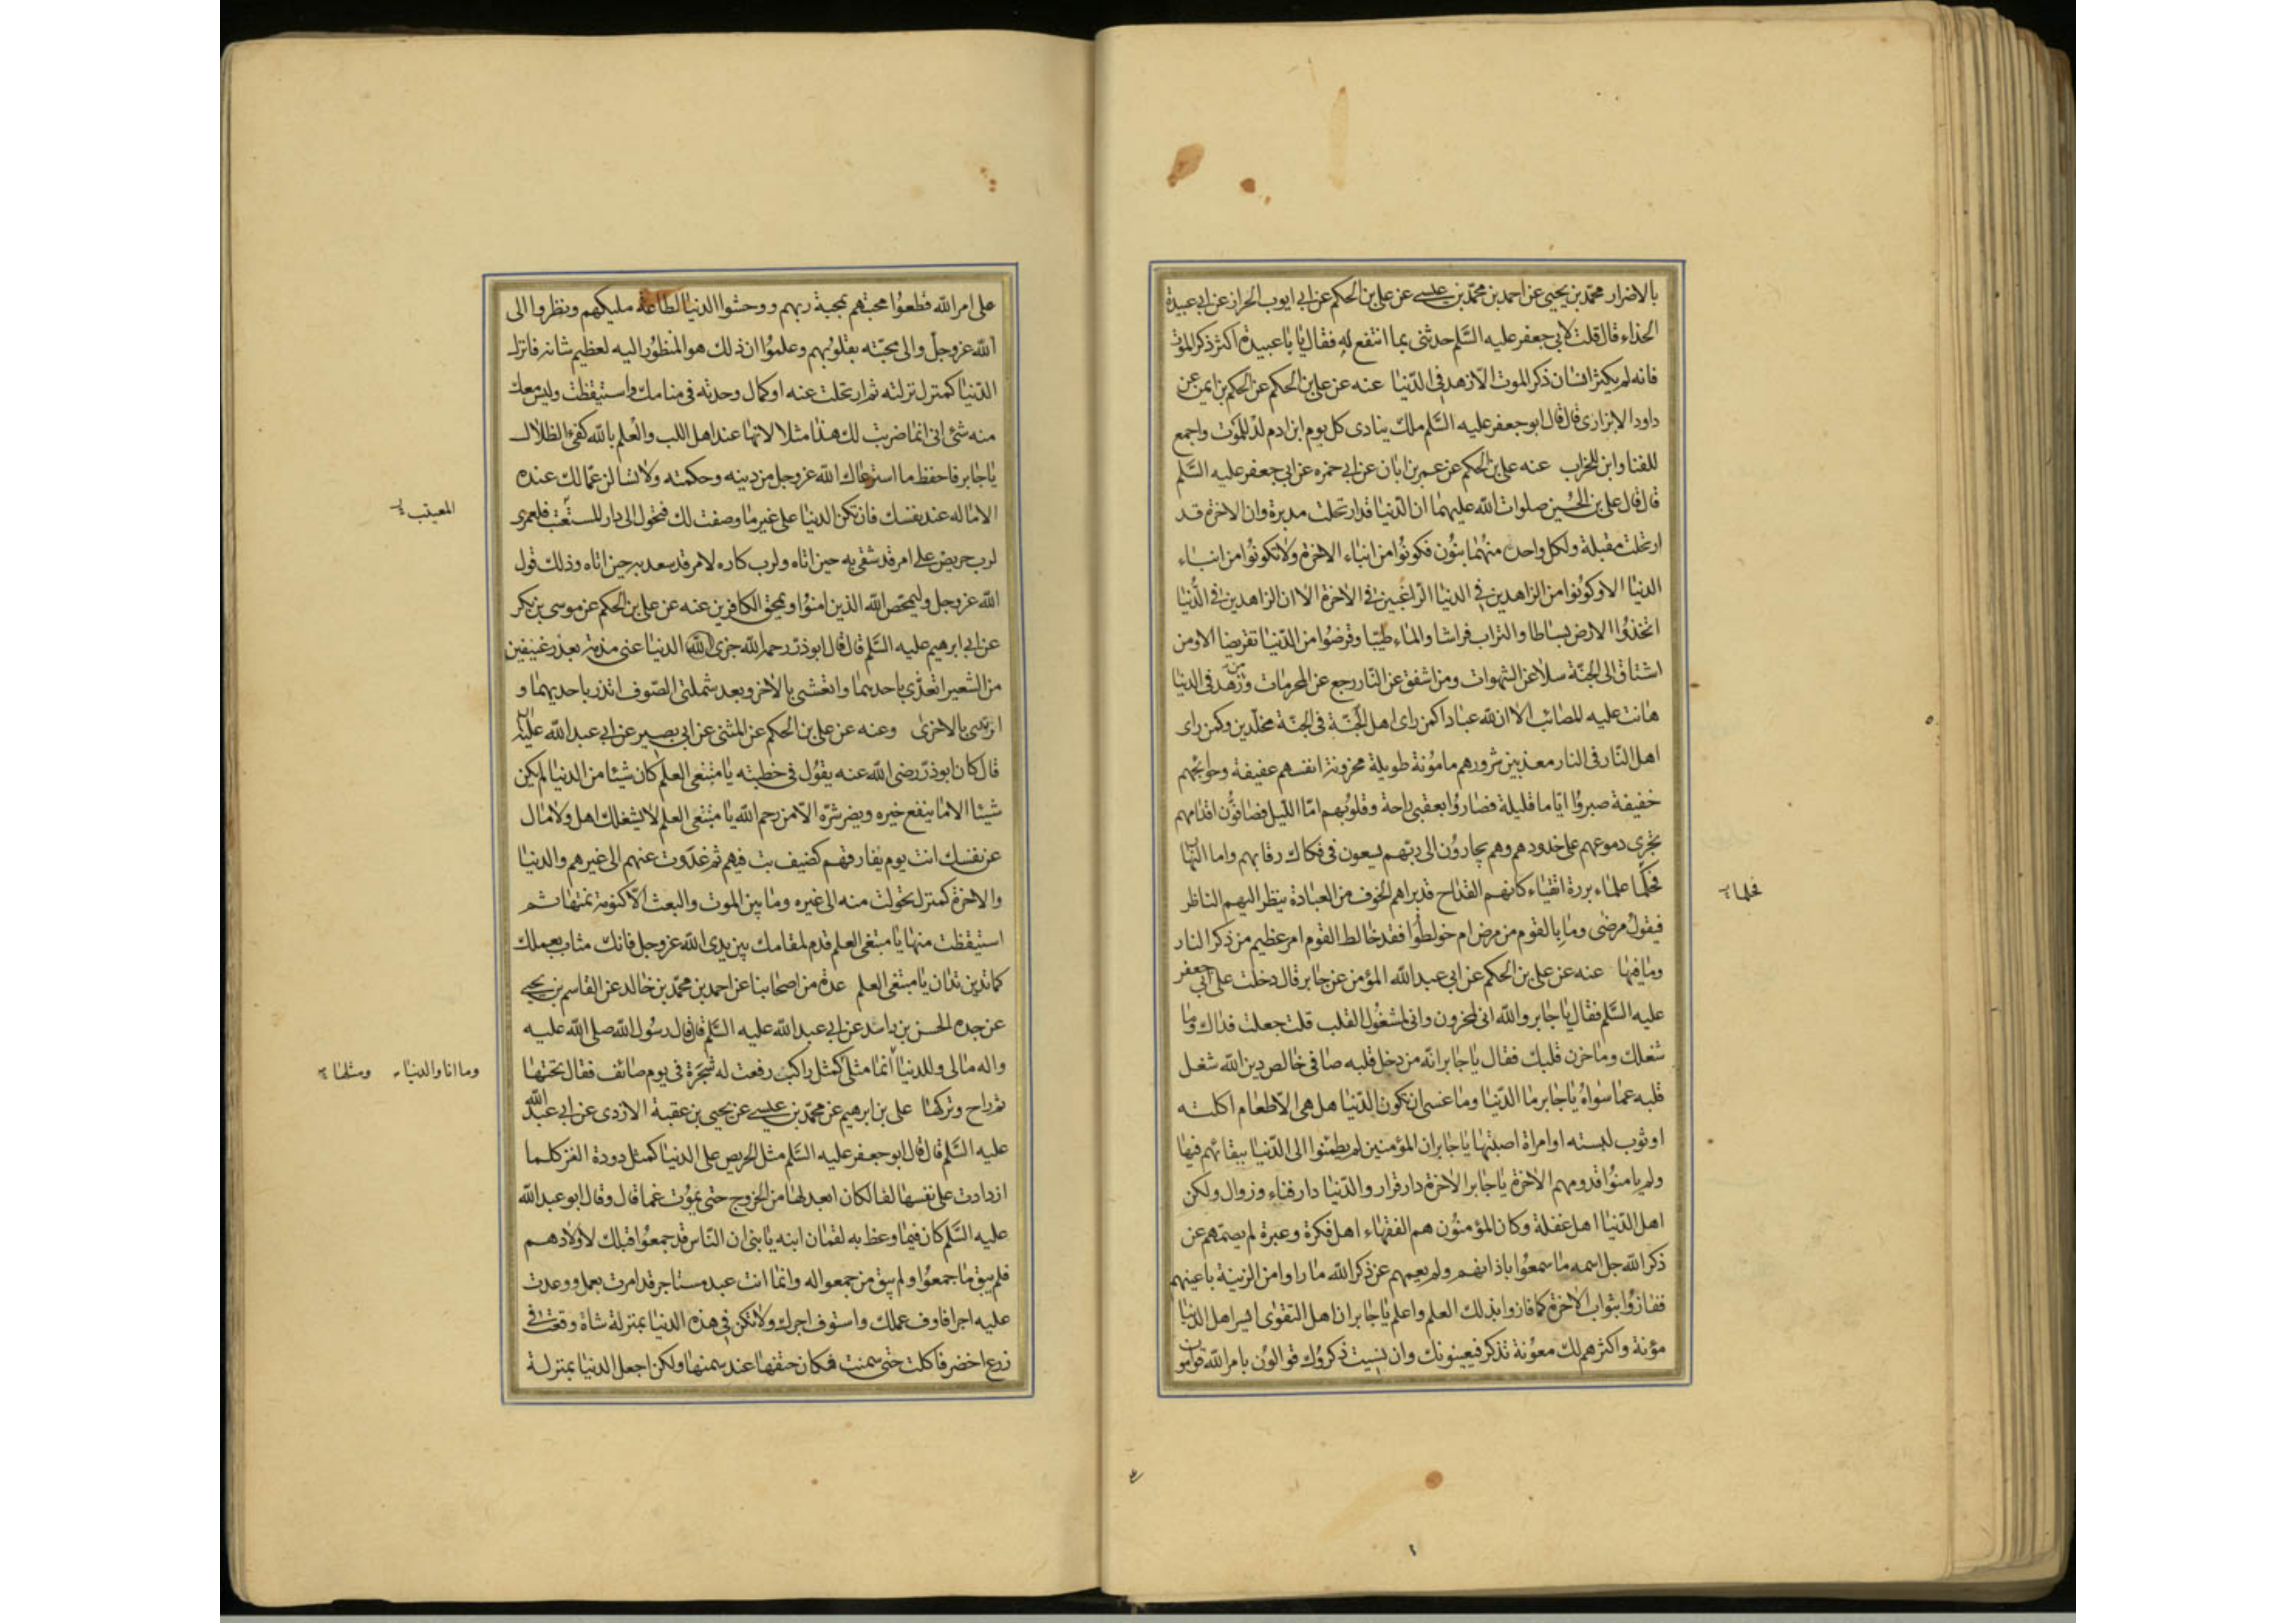 بالاضرار محمد بن يحيى عن احمد بن محمد بن عيسى عن على بن الحكم عن ابى ايوب الخراز عن ابى عبيدة
الحذاء قال قلت لابى جعفر عليه السلم حدثنى بما انتفع له فقال يا با عبيدة اكثر ذكر الموت
فانه لم يكثر انسان ذكر الموت الا زهد فى الدنيا عنه عن على بن الحكم عن الحكم بن ايمن عن
داود الابزارى قال قال ابو جعفر عليه السلم ملك ينادى كل يوم ابن ادم لد للموت واجمع
للفنا وابن للخراب عنه على بن الحكم عن عمر بن ابان عن ابى حمزه عن ابى جعفر عليه السلم
قال قال على بن الحسين صلوات الله عليهما ان الدنيا قد ارتحلت مدبرة وان الاخرة قد
ارتحلت مقبلة ولكل واحد منهما بنون فكونوا من ابناء الاخرة ولا تكونوا من ابناء
الدنيا الا وكونوا من الزاهدين فى الدنيا الراغبين فى الاخرة الا ان الزاهدين فى الدنيا
اتخذوا الارض بساطا والتراب فراشا والماء طيبا وقرضوا من الدنيا تقريضا الا ومن
اشتاق الى الجنة سلا عن الشهوات ومن اشفق عن النار رجع عن المحرمات ومن زهد فى الدنيا
هانت عليه المصائب الا ان لله عبادا كمن راى اهل الجنة فى الجنة مخلدين وكمن راى
اهل النار فى النار معذبين شرورهم مامونة طويلة محزونة انفسهم عفيفة وحوايجهم
خفيفة صبروا اياما قليلة فصاروا بعقبى راحة وقلوبهم اما الليل فصافون اقدامهم
تجرى دموعهم على خدودهم وهم يجارون الى ربهم يسعون فى فكاك رقابهم واما النهار
فحكما علماء بررة اتقياء كانهم القداح قد براهم الخوف من العبادة ينظر اليهم الناظر
فيقول مرضى وما بالقوم من مرض ام خولطوا فقد خالط القوم امر عظيم من ذكر النار
وما فيها عنه عن على بن الحكم عن ابى عبد الله المؤمن عن جابر قال دخلت على ابى جعفر
عليه السلم فقال يا جابر والله انى لمحزون وانى لمشغول القلب قلت جعلت فداك وما
شغلك وما حزن قلبك فقال يا جابر انه من دخل قلبه صافى خالص دين الله شغل
قلبه عما سواه يا جابر ما الدنيا وما عسى ان تكون الدنيا هل هى الا طعام اكلته
او ثوب لبسته او امراة اصبتها يا جابر ان المؤمنين لم يطمئنوا الى الدنيا ببقائهم فيها
ولم يامنوا قدومهم الاخرة يا جابر الاخرة دار قرار والدنيا دار فناء وزوال ولكن
اهل الدنيا اهل غفلة وكان المؤمنون هم الفقهاء اهل فكرة وعبرة لم يصمهم عن
ذكر الله جل اسمه ما سمعوا باذانهم ولم يعمهم عن ذكر الله ما راوا من الزينة باعينهم
ففازوا بثواب الاخرة كما فازوا بذلك العلم واعلم يا جابر ان اهل التقوى ايسر اهل الدنيا
مؤنة واكثرهم لك معونة تذكر فيعينونك وان نسيت ذكروك قوالون بامر الله قوامون
على امر الله قطعوا محبتهم بمحبة ربهم ووحشوا الدنيا لطاعة مليكهم ونظروا الى
الله عز وجل والى محبته بقلوبهم وعلموا ان ذلك هو المنظور اليه لعظيم شانه فانزل
الدنيا كمنزل نزلته ثم ارتحلت عنه او كمال وجدته فى منامك واستيقظت وليس معك
منه شئ انى انما ضربت لك هذا مثلا لانها عند اهل اللب والعلم بالله كفئ الظلال
يا جابر فاحفظ ما استرعاك الله عز وجل من دينه وحكمته ولا تسالن عما لك عنده
الا ما له عند نفسك فان تكن الدنيا على غير ما وصفت لك فتحول الى دار المستعتب فلعمرى
لرب حريص على امر قد شقى به حين اتاه ولرب كاره لامر قد سعد به حين اتاه وذلك قول
الله عز وجل وليمحص الله الذين امنوا ويمحق الكافرين عنه عن على بن الحكم عن موسى بن بكر
عن ابى ابرهيم عليه السلم قال قال ابو ذر رحمه الله جزى الله الدنيا عنى مذمة بعد رغيفين
من الشعير اتغدى باحدهما واتعشى بالاخر وبعد شملتى الصوف اتزر باحديهما و
ارتدى بالاخرى وعنه عن على بن الحكم عن المثنى عن ابى بصير عن ابى عبد الله عليه
قال كان ابو ذر رضى الله عنه يقول فى خطبته يا مبتغى العلم كان شيئا من الدنيا لم يكن
شيئا الا ما ينفع خيره ويضر شره الا من رحم الله يا مبتغى العلم لا يشغلك اهل ولا مال
عن نفسك انت يوم يفارقهم كضيف بت فيهم ثم غدوت عنهم الى غيرهم والدنيا
والاخرة كمنزل تحولت منه الى غيره وما بين الموت والبعث الا كنومة نمتها ثم
استيقظت منها يا مبتغى العلم قدم لمقامك بين يدى الله عز وجل فانك مثاب بعملك
كما تدين تدان يا مبتغى العلم عدة من اصحابنا عن احمد بن محمد بن خالد عن القاسم بن يحيى
عن جده الحسن بن راشد عن ابى عبد الله عليه السلم قال قال رسول الله صلى الله عليه
واله مالى وللدنيا انما مثلى كمثل راكب رفعت له شجرة فى يوم صائف فقال تحتها
ثم راح وتركها على بن ابرهيم عن محمد بن عيسى عن يحيى بن عقبة الازدى عن ابى عبد الله
عليه السلم قال قال ابو جعفر عليه السلم مثل الحريص على الدنيا كمثل دودة القز كلما
ازدادت على نفسها لفا كان ابعد لها من الخروج حتى يموت غما قال وقال ابو عبد الله
عليه السلم كان فيما وعظ به لقمان ابنه يا بنى ان الناس قد جمعوا قبلك لاولادهم
فلم يبق ما جمعوا ولم يبق من جمعوا له وانما انت عبد مستاجر قد امرت بعمل ووعدت
عليه اجرا فاوف عملك واستوف اجرك ولا تكن فى هذه الدنيا بمنزلة شاة وقعت فى
زرع اخضر فاكلت حتى سمنت فكان حتفها عند سمنها ولكن اجعل الدنيا بمنزلة
وما انا والدنيا ومثلها